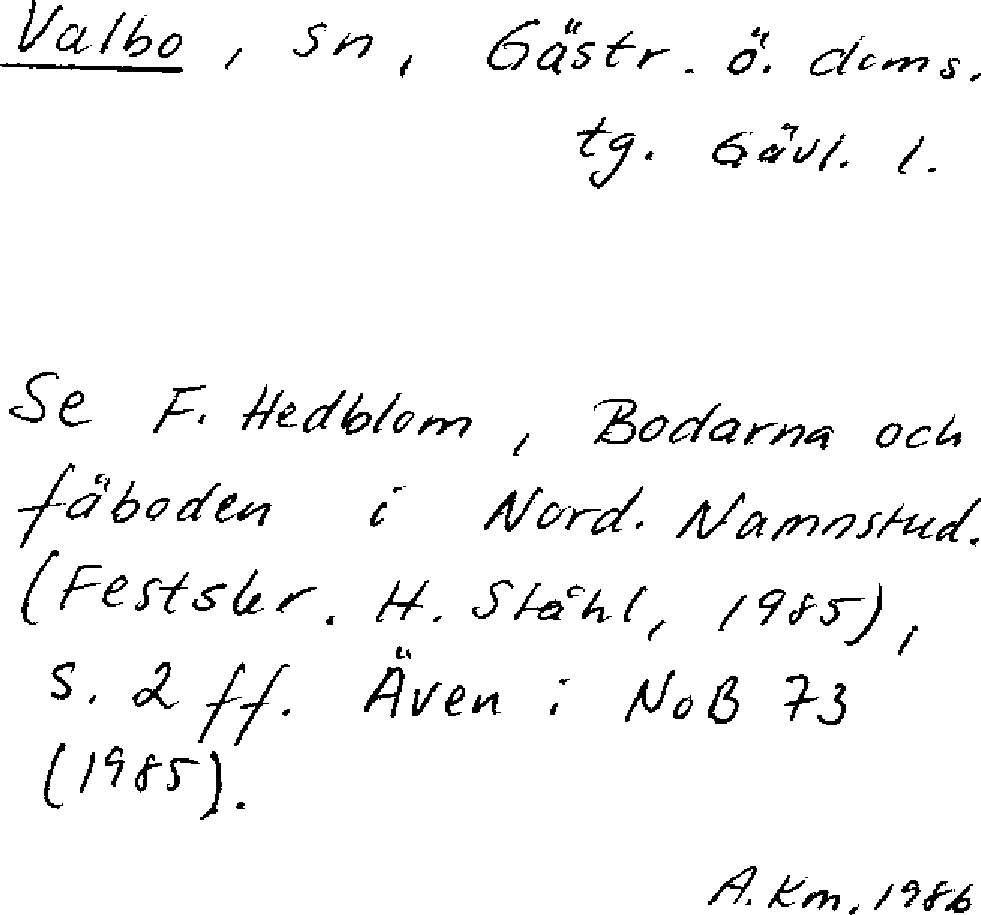 Valbo, sn, Gästr. ö. doms.
tg. Gävl. l.
Se F. Hedblom, Bodarna och
fäboden i Nord. Namnstud.
(Festskr. H. Ståhl, 1985),
s. 2 ff. Även i NoB 73
(1985).
A. Km. 1986